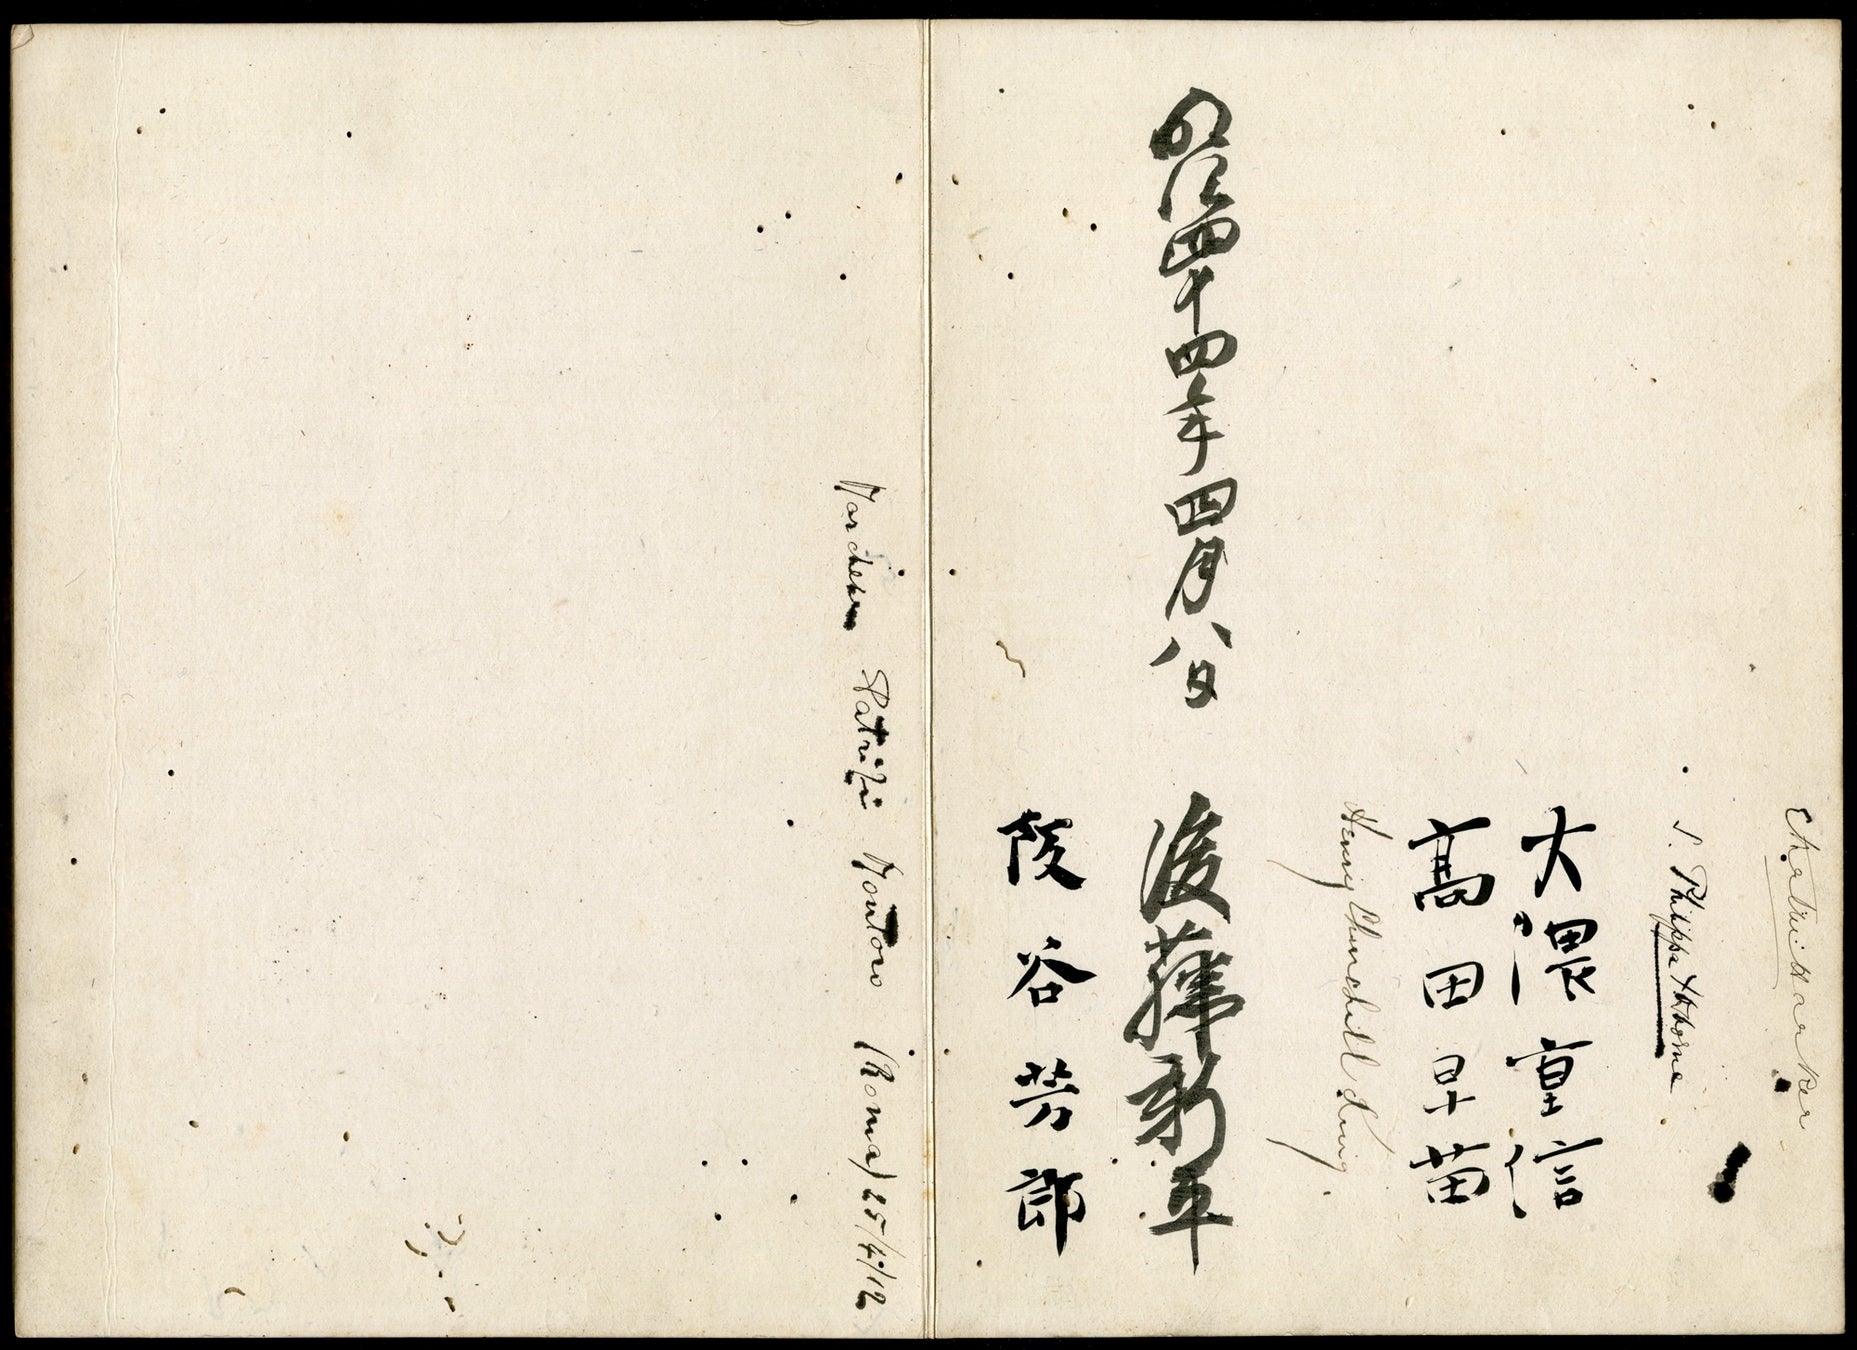 大隈重信
高田早苗
Henry Churchill King
明治四十四年四月八日 後藤新平
阪谷芳郎
Patrizi Montoro (Roma) 25/4/12